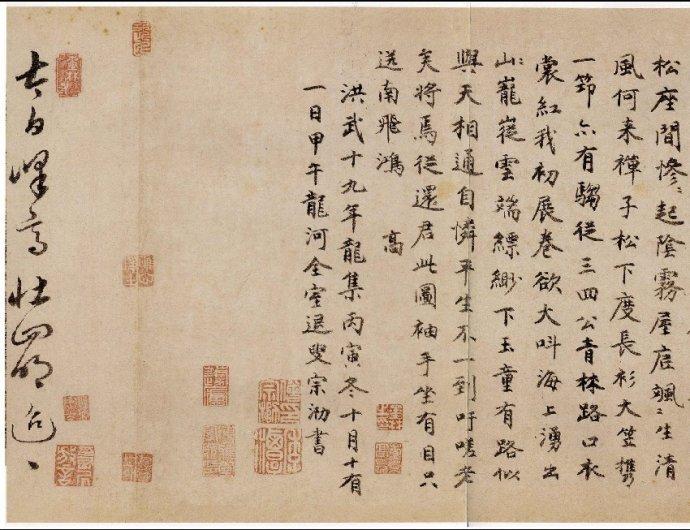 松座間慘〻起陰霧屋底颯〻生清
風何来禪子松下度長衫大笠携
一笻亦有騶從三四公青林路口衣
裳紅我初展卷欲大叫海上湧出
山〻巃嵸雲端縹緲下玉童有路似
與天相通自憐平生不一到吁嗟老
矣將焉從還君此圖袖手坐有目只
送南飛鴻 高
洪武十九年龍集丙寅冬十月十有
一日甲午龍河全室退叟宗泐書
太白峰高壮四明迢〻